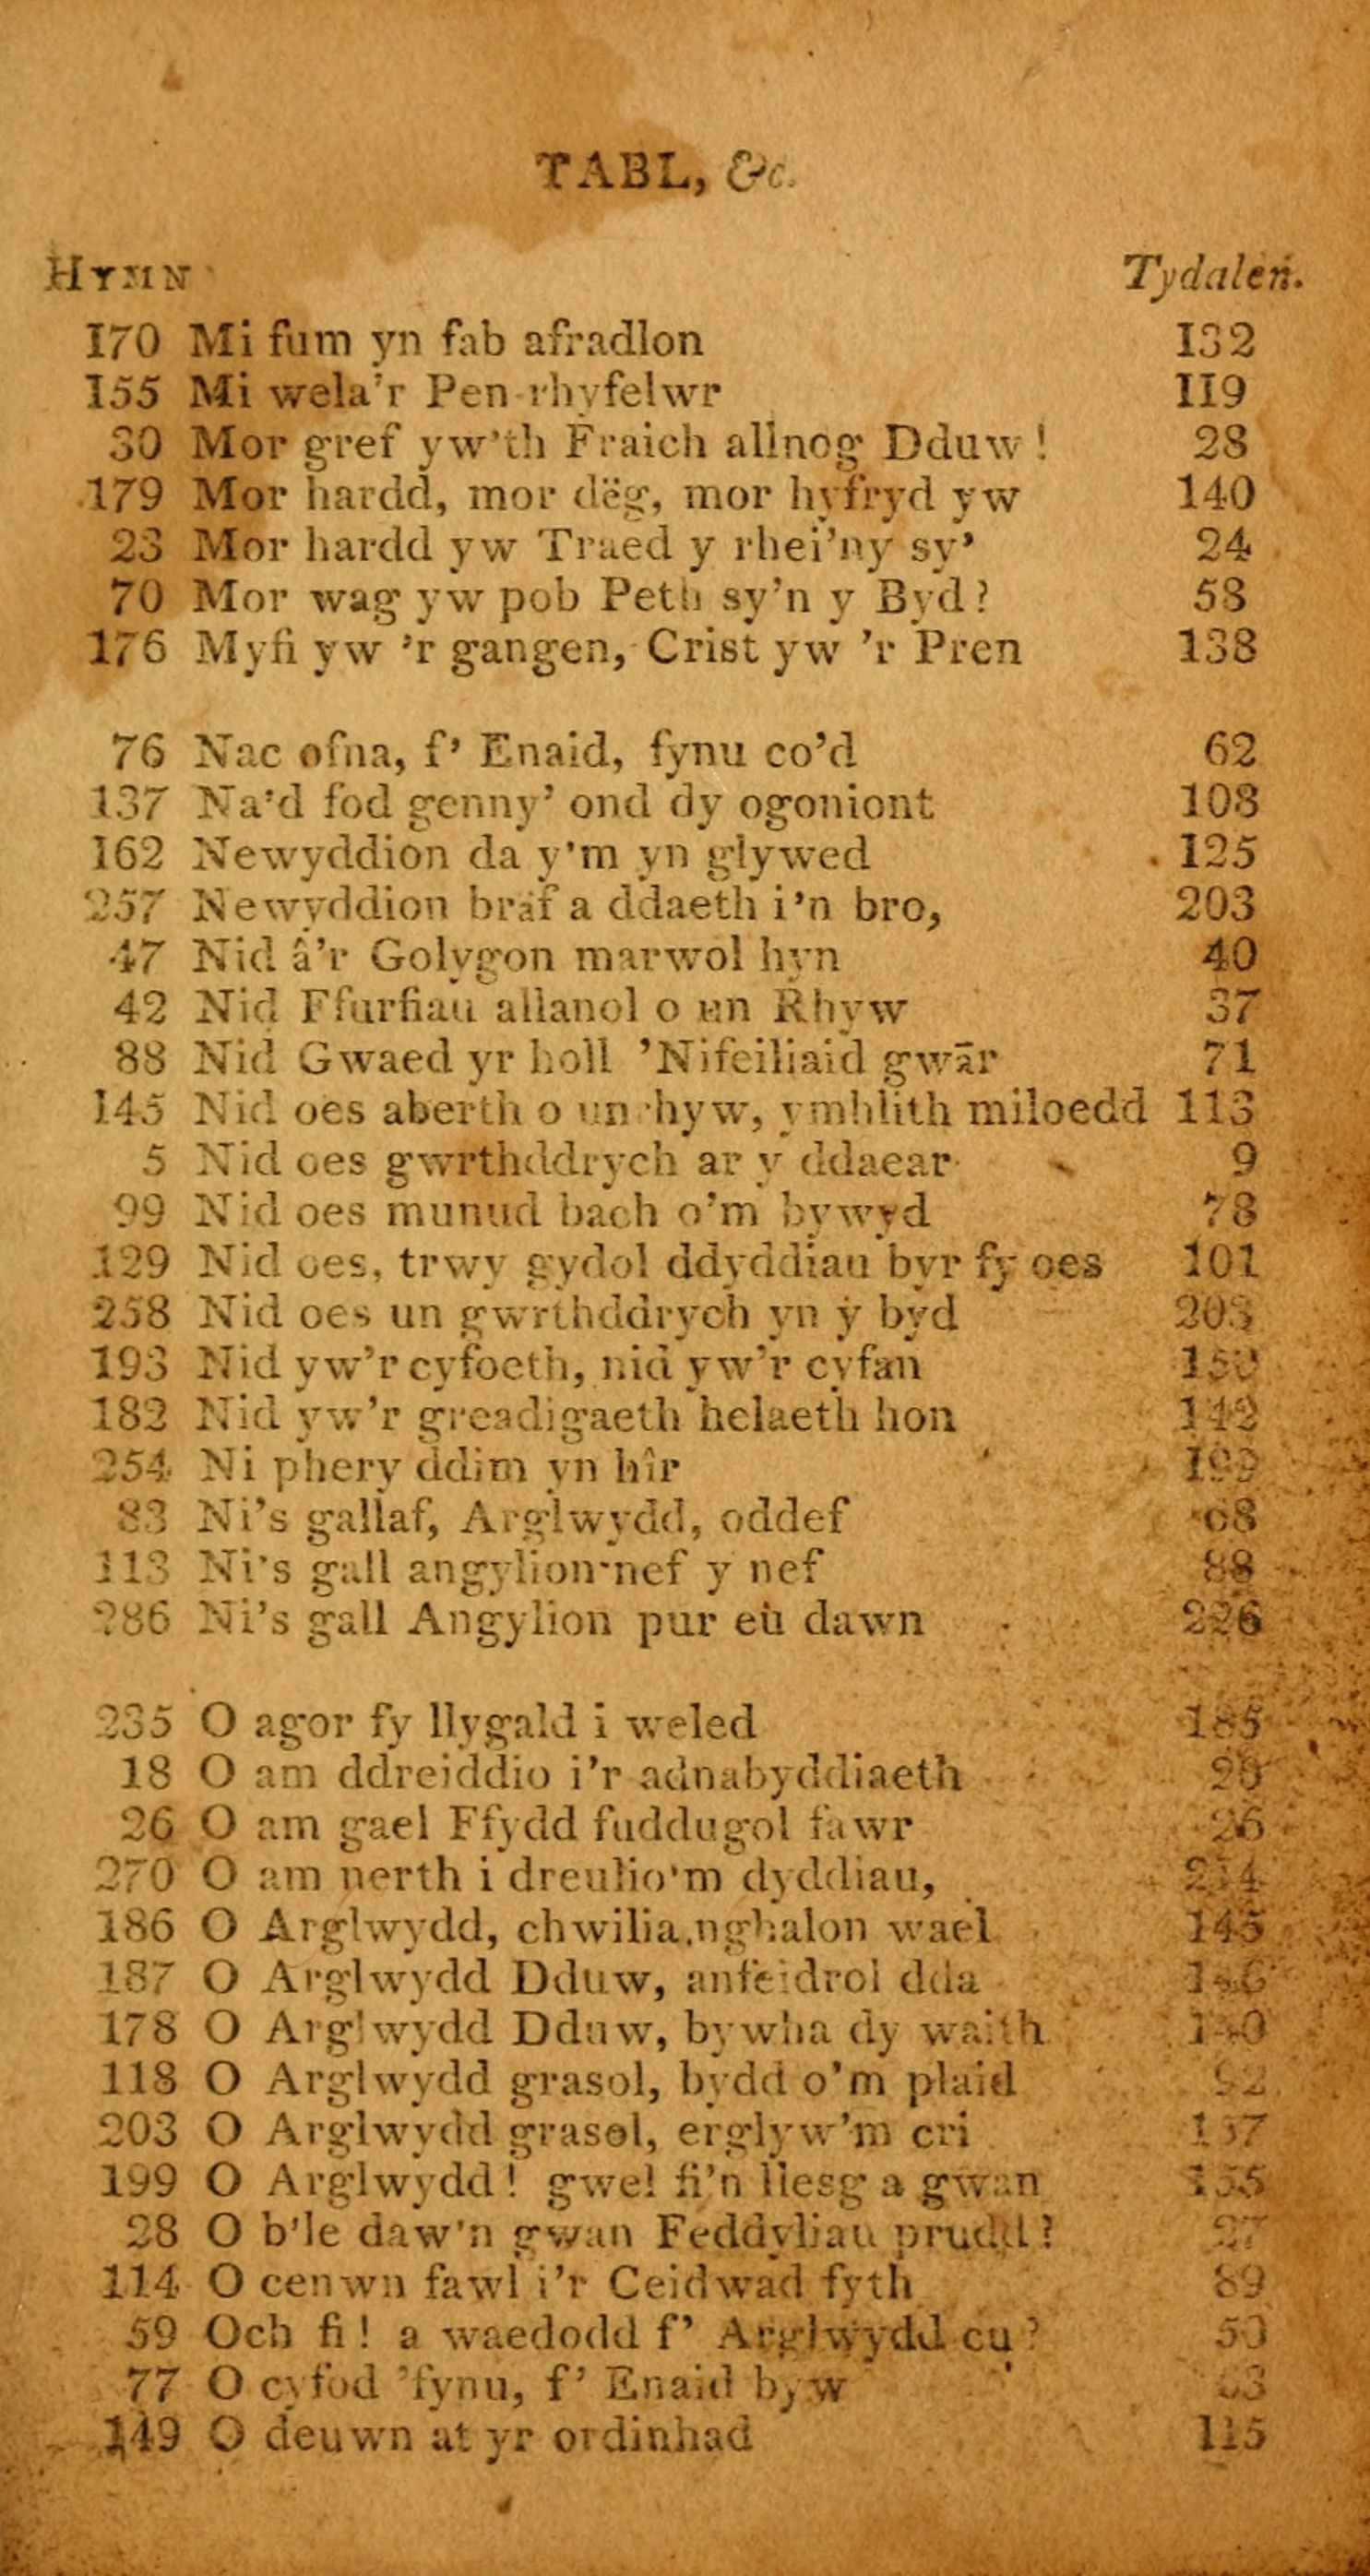 TABL, &c.
HYMN Tydalen.
170 Mi fum yn fab afradlon 132
155 Mi wela'r Pen-rhyfelwr 119
30 Mor gref yw'th Fraich allnog Dduw ! 28
179 Mor hardd, mor dëg, mor hyfryd yw 140
23 Mor hardd yw Traed y rhei'ny sy' 24
70 Mor wag yw pob Peth sy'n y Byd? 58
176 Myfi yw 'r gangen, Crist yw 'r Pren 138
76 Nac ofna, f' Enaid, fynu co'd 62
137 Na'd fod genny' ond dy ogoniont 108
162 Newyddion da y'm yn glywed 125
257 Newyddion braf a ddaeth i'n bro, 203
47 Nid â'r Golygon marwol hyn 40
42 Nid Ffurfiau allanol o un Rhyw 37
88 Nid Gwaed yr holl 'Nifeiliaid gwār 71
145 Nid oes aberth o un rhyw, ymhlith miloedd 113
5 Nid oes gwrthddrych ar y ddaear 9
99 Nid oes munud bach o'm bywyd 78
129 Nid oes, trwy gydol ddyddiau byr fy oes 101
258 Nid oes un gwrthddrych yn y byd 203
193 Nid yw'r cyfoeth, nid yw'r cyfan
182 Nid yw'r greadigaeth helaeth hon 142
254 Ni phery ddim yn hîr
83 Ni's gallaf, Arglwydd, oddef 68
113 Ni's gall angylion nef y nef 88
286 Ni's gall Angylion pur eu dawn 226
235 O agor fy llygald i weled 185
18 O am ddreiddio i'r adnabyddiaeth 20
26 O am gael Ffydd fuddugol fawr 26
270 O am nerth i dreulio'm dyddiau, 214
186 O Arglwydd, chwilia,nghalon wael 145
187 O Arglwydd Dduw, anfeidrol dda 146
178 O Arglwydd Dduw, bywha dy waith 140
118 O Arglwydd grasol, bydd o'm plaid 92
203 O Arglwydd grasol, erglyw'm cri 157
199 O Arglwydd! gwel fi'n llesg a gwan 155
28 O b'le daw'n gwan Feddyliau prudd? 27
114 O cenwn fawl i'r Ceidwad fyth 89
59 Och fi! a waedodd f' Arglwydd cu? 50
77 O cyfod 'fynu, f' Enaid byw 63
149 O deuwn at yr ordinhad 115